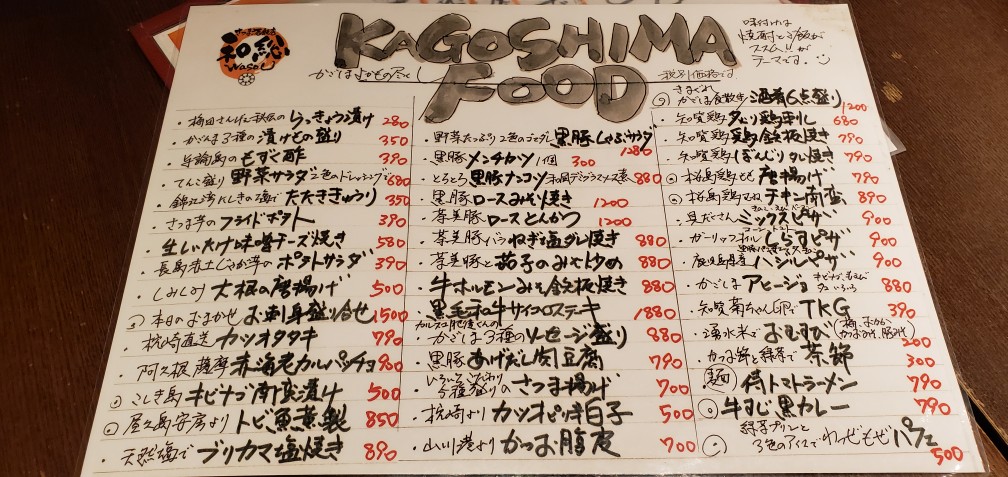 和総
WASOU
KAGOSHIMA
FOOD
かごしまよかもの尽くし
税別価格です
味付けは
焼酎とご飯が
ススム!!が
テーマです。
・梅田さんげぇ秘伝のらっきょう漬け 280
・かごんま3種の漬けもの盛り 350
・与論島のもずく酢 390
・てんこ盛り野菜サラダ 2色のドレッシングで 680
・錦江湾にしきの塩でたたききゅうり 350
・さつま芋のフライドポテト 390
・生しいたけ味噌チーズ焼き 580
・長島赤土じゃが芋のポテトサラダ 390
・しみしみ大根の唐揚げ 500
・本日のおまかせお刺身盛り合せ 1500
・枕崎直送カツオタタキ 790
・阿久根薩摩赤海老カルパッチョ 900
・こしき島キビナゴ南蛮漬け 500
・屋久島安房よりトビ魚薫製 850
・天然塩でブリカマ塩焼き 890
・野菜たっぷり2色のゴマダレ黒豚しゃぶサラダ 1280
・黒豚メンチカツ 1個 300
・とろとろ黒豚ナンコツ 和風デミグラソース煮 880
・黒豚ロースみそ焼き 1200
・茶美豚ロースとんかつ 1200
・茶美豚バラねぎ塩ダレ焼き 880
・茶美豚と茄子のみそ炒め 880
・牛ホルモンみそ鉄板焼き 880
・黒毛和牛サイコロステーキ 1880
・かごしま3種のソーセージ盛り 880
・黒豚あげだし肉豆腐 790
・いろいろこだわり5種盛りのさつま揚げ 700
・枕崎よりカツオピリ辛白子 500
・山川港よりかつお腹皮 700
かごしま食散歩 酒肴6点盛り 1200
・知覧鶏タタリ鶏刺し 680
・知覧鶏鶏鉄板焼き 790
・知覧鶏ぼんじりタレ焼き 790
・桜島鶏もも唐揚げ 790
・桜島鶏むねチキン南蛮 890
・具だくさんミックスピザ 900
・ガーリックオイルしらすピザ 900
・鹿児島県産バジルピザ 900
・かごしまアヒージョ 880
・知覧菊ちゃん卵でTKG 390
・湧水米でおむすび 200
・かつお節と緑茶で茶節 300
麺 侍トマトラーメン 790
・牛すじ黒カレー 790
・緑茶プリンと3色のアイスでわぜもぜパフェ 500